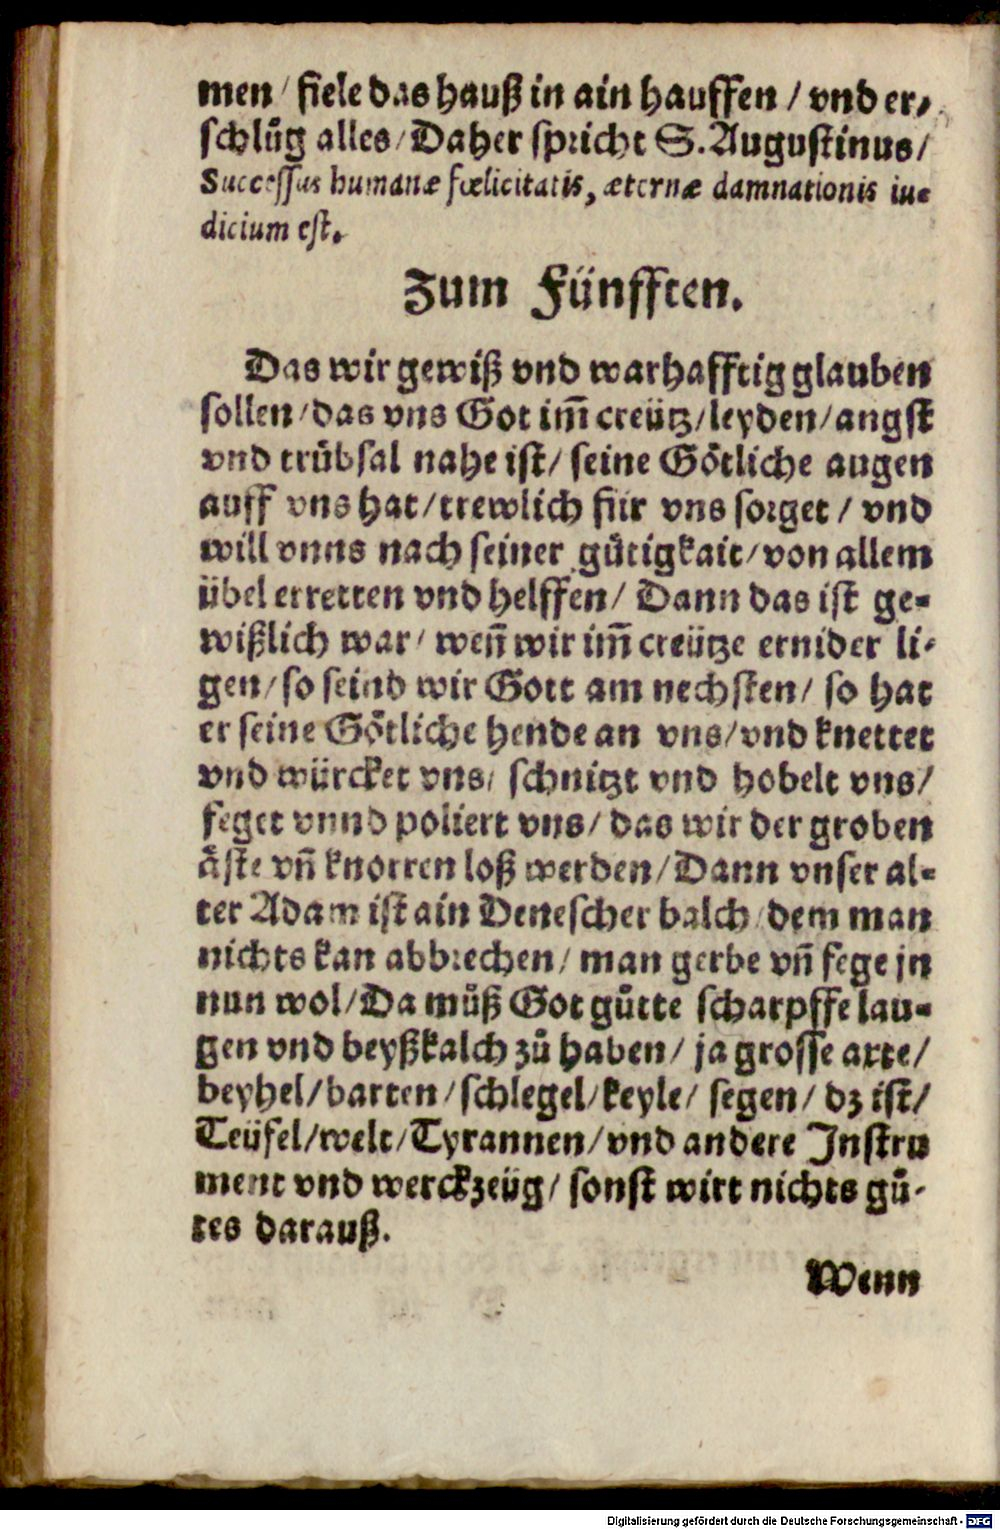 men / fiele das hauß in ain hauffen / vnd er⸗
schlůg alles / Daher spricht S. Augustinus /
Successus humanæ fœlicitatis, æternæ damnationis iu⸗
dicium est.
Zum Fünfften.
Das wir gewiß vnd warhafftig glauben
sollen / das vns Got im̃ creütz / leyden / angst
vnd trübsal nahe ist / seine Götliche augen
auff vns hat / trewlich für vns sorget / vnd
will vnns nach seiner gütigkait / von allem
übel erretten vnd helffen / Dann das ist ge⸗
wißlich war / weñ wir im̃ creütze ernider li⸗
gen / so seind wir Gott am nechsten / so hat
er seine Götliche hende an vns / vnd knettet
vnd würcket vns / schnitzt vnd hobelt vns /
feget vnnd poliert vns / das wir der groben
äste vñ knorren loß werden / Dann vnser al⸗
ter Adam ist ain Denescher balch / dem man
nichts kan abbrechen / man gerbe vñ fege jn
nun wol / Da můß Got gůtte scharpffe lau⸗
gen vnd beyßkalch zů haben / ja grosse axte /
beyhel / barten / schlegel / keyle / segen / dz ist /
Teüfel / welt / Tyrannen / vnd andere Instru
ment vnd werckzeüg / sonst wirt nichts gů⸗
tes darauß.
Wenn
Digitalisierung gefördert durch die Deutsche Forschungsgemeinschaft - DFG